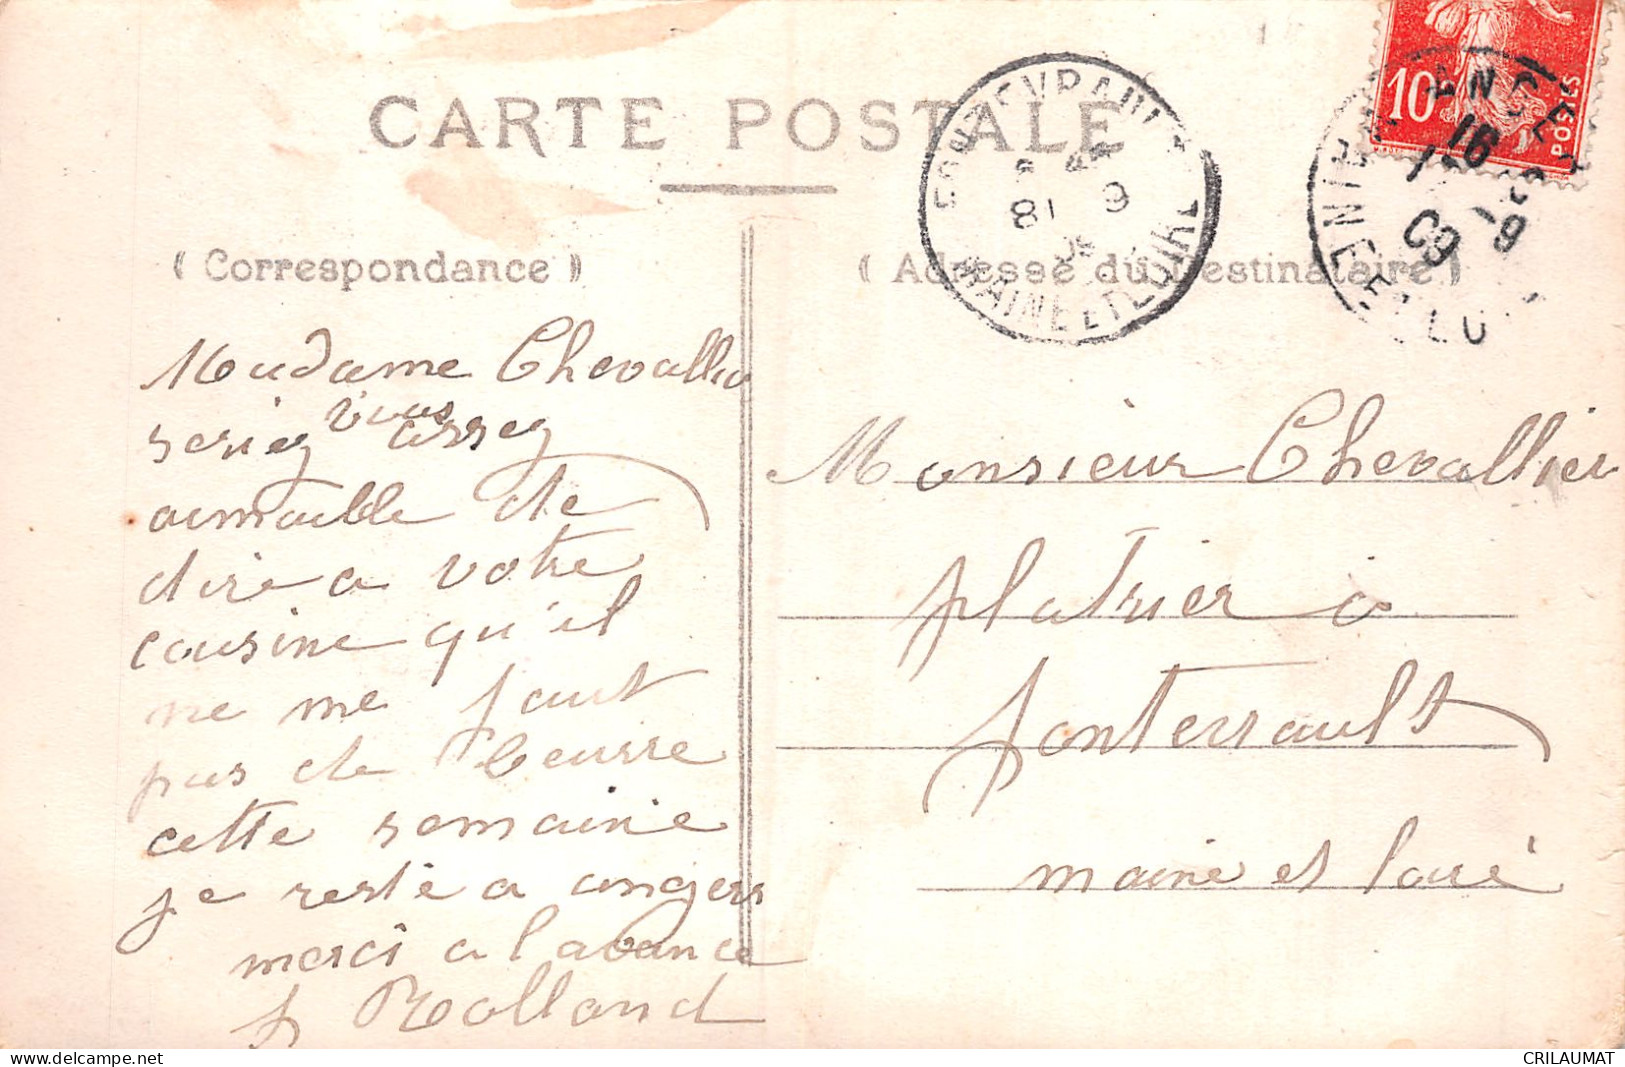 CARTE POSTALE
(Correspondance)
(Adresse du Destinataire)
10c
POSTES
FONTEVRAULT
MAINE ET LOIRE
18 9
MAINE ET LO
16
9
09
Madame Chevallier
seriez vous assez
aimable de
dire a votre
cousine qu'il
ne me faut
pas de beurre
cette semaine
je reste a angers
merci a l avance
Rolland
Monsieur Chevallier
platrier a
fontevrault
maine et loire
delcampe.net
CRILAUMAT